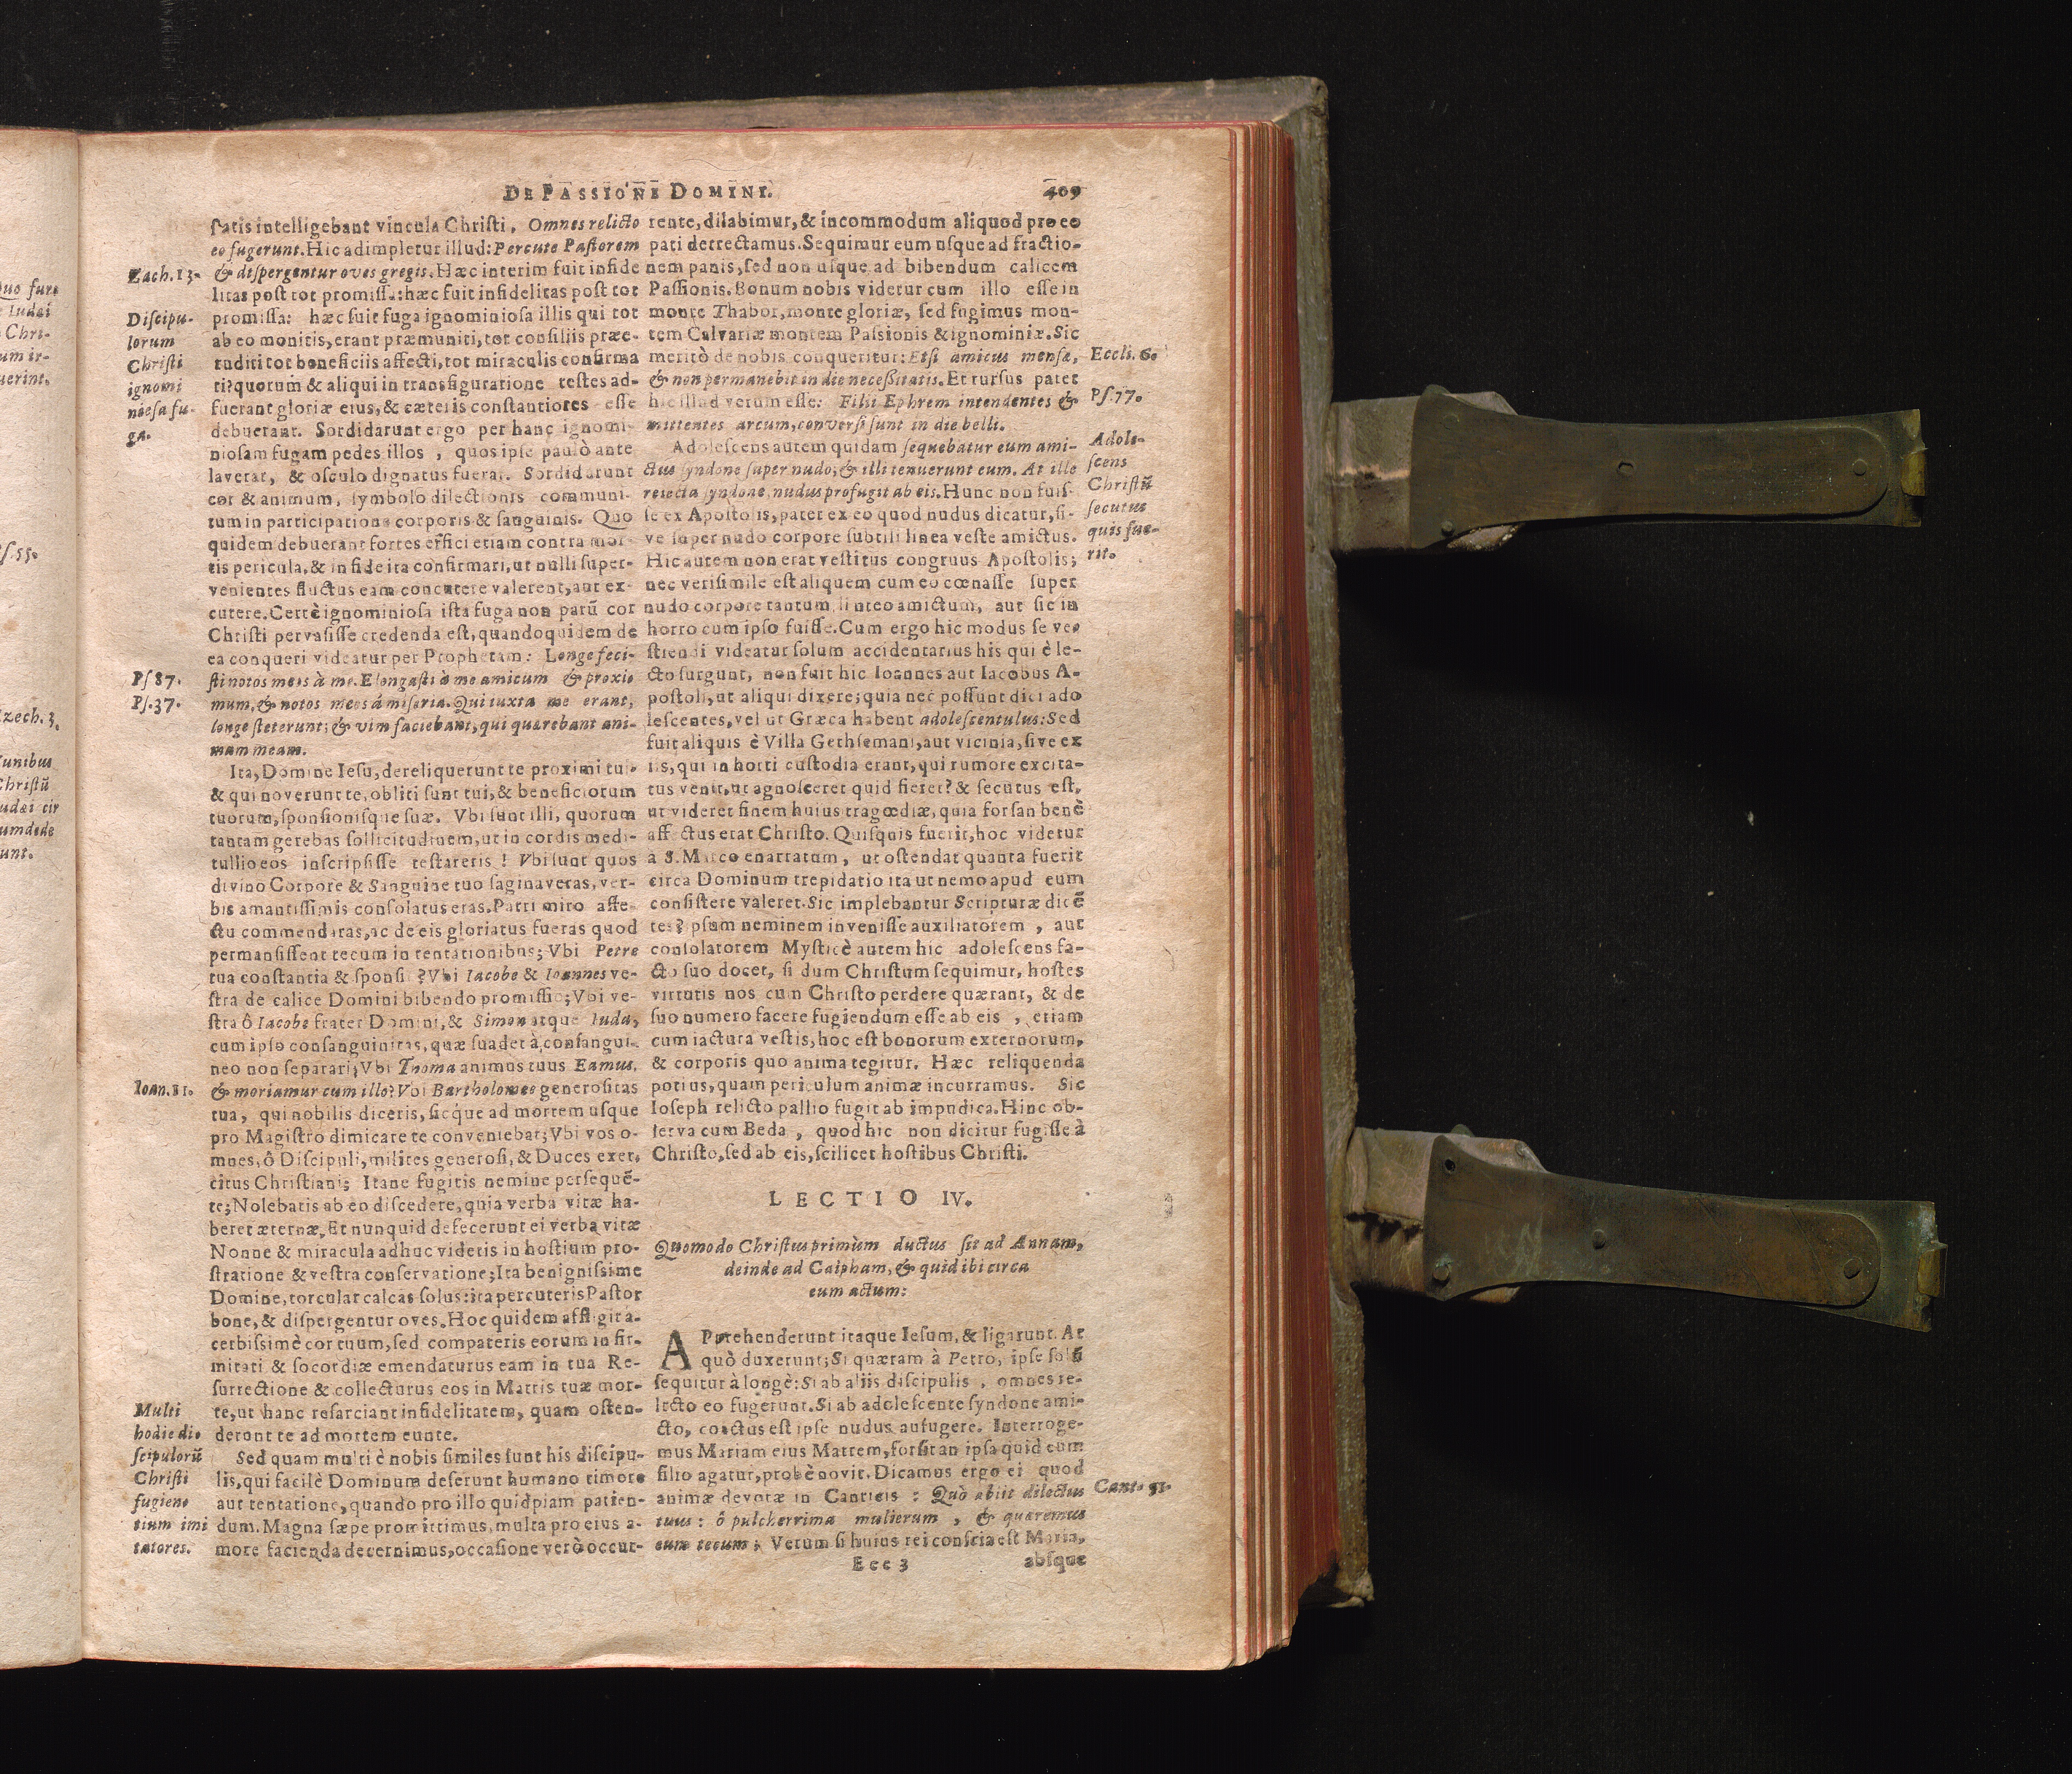 DE PASSIONE DOMINI.
409
ſatis intelligebant vincula Chriſti, Omnes relicto
eo fugerunt. Hic adimpletur illud: Percute Paſtorem
& diſpergentur oves gregis. Hæc interim fuit infide
litas poſt tot promiſſa: hæc fuit infidelitas poſt tot
promiſſa: hæc fuit fuga ignominioſa illis qui tot
ab eo monitis, erant præmuniti, tot conſiliis præe-
ruditi tot beneficiis affecti, tot miraculis confirma
ti? quorum & aliqui in transfiguratione teſtes ad-
fuerant gloriæ eius, & cæteris conſtantiores eſſe
debuerant. Sordidarunt ergo per hanc ignomi-
nioſam fugam pedes illos, quos ipſe paulò ante
laverat, & oſculo dignatus fuerat. Sordidarunt
cor & animum, ſymbolo dilectionis communi-
tum in participatione corporis & ſanguinis. Quo
quidem debuerant fortes effici etiam contra mor-
tis pericula, & in fide ita confirmari, ut nulli ſuper-
venientes fluctus eam concutere valerent, aut ex-
cutere. Certè ignominioſa iſta fuga non parū cor
Chriſti pervaſiſſe credenda eſt, quandoquidem de
ea conqueri videatur per Prophetam: Longe feci-
ſti notos meos à me. Elongaſti à me amicum & proxi-
mum, & notos meos á miſeria. Qui iuxta me erant,
longe ſteterunt; & vim faciebant, qui quærebant ani-
mam meam.
Ita, Domine Ieſu, dereliquerunt te proximi tui-
& qui noverunt te, obliti ſunt tui, & beneficiorum
tuorum, ſponſioniſque ſuæ. Vbi ſunt illi, quorum
tantam gerebas ſollicitudinem, ut in cordis medi-
tullio eos inſcripſiſſe teſtareris! Vbi ſunt quos
divino Corpore & Sanguine tuo ſaginaveras, ver-
bis amantiſſimis conſolatus eras. Patri miro affe-
ctu commendaras, ac de eis gloriatus fueras quod
permanſiſſent tecum in tentationibus; Vbi Petre
tua conſtantia & ſponſio? Vbi Iacobe & Ioannes ve-
ſtra de calice Domini bibendo promiſſio; Vbi ve-
ſtra ô Iacobe frater Domini, & Simon atque Iuda,
cum ipſo conſanguinitas, quæ ſuadet à conſangui-
neo non ſeparari; Vbi Thoma animus tuus Eamus,
& moriamur cum illo? Vbi Bartholomæe generoſitas
tua, qui nobilis diceris, ſicque ad mortem uſque
pro Magiſtro dimicare te conveniebat; Vbi vos o-
mnes, ô Diſcipuli, milites generoſi, & Duces exer-
citus Chriſtiani; Itane fugitis nemine perſequē-
te; Nolebatis ab eo diſcedere, quia verba vitæ ha-
beret æternæ, Et nunquid defecerunt ei verba vitæ
Nonne & miracula adhuc videtis in hoſtium pro-
ſtratione & veſtra conſervatione; Ita benigniſsime
Domine, torcular calcas ſolus: ita percuteris Paſtor
bone, & diſpergentur oves. Hoc quidem affligit a-
cerbiſsimè cor tuum, ſed compateris eorum infir-
mitati & ſocordiæ emendaturus eam in tua Re-
ſurrectione & collecturus eos in Matris tuæ mor-
te, ut hanc reſarciant infidelitatem, quam oſten-
derunt te ad mortem eunte.
Sed quam multi è nobis ſimiles ſunt his diſcipu-
lis, qui facilè Dominum deſerunt humano timore
aut tentatione, quando pro illo quidpiam patien-
dum. Magna ſæpe promittimus, multa pro eius a-
more facienda decernimus, occaſione verò occur-
Zach. 13.
Diſcipu-
lorum
Chriſti
ignomi
nioſa fu-
ga.
Pſ 87.
Pſ. 37.
Ioan. 11.
Multi
hodie di-
ſcipulorū
Chriſti
fugien-
tium imi
tatores.
rente, dilabimur, & incommodum aliquod pro eo
pati detrectamus. Sequimur eum uſque ad fractio-
nem panis, ſed non uſque ad bibendum calicem
Paſſionis. Bonum nobis videtur cum illo eſſe in
monte Thabor, monte gloriæ, ſed fugimus mon-
tem Calvariæ montem Paſsionis & ignominiæ. Sic
meritò de nobis conqueritur: Etſi amicus menſæ,
& non permanebit in die neceſſitatis. Et rurſus patet
hic illud verum eſſe: Filii Ephrem intendentes &
mittentes arcum, converſi ſunt in die belli.
Adoleſcens autem quidam ſequebatur eum ami-
ctus ſyndone ſuper nudo; & illi tenuerunt eum. At ille
reiecta ſyndone, nudus profugit ab eis. Hunc non fuiſ-
ſe ex Apoſtolis, patet ex eo quod nudus dicatur, ſi-
ve ſuper nudo corpore ſubtili linea veſte amictus.
Hic autem non erat veſtitus congruus Apoſtolis;
nec veriſimile eſt aliquem cum eo cœnaſſe ſuper
nudo corpore tantum linteo amictum, aut ſic in
horto cum ipſo fuiſſe. Cum ergo hic modus ſe ve-
ſtiendi videatur ſolum accidentarius his qui è le-
cto ſurgunt, non fuit hic Ioannes aut Iacobus A-
poſtoli, ut aliqui dixere; quia nec poſſunt dici ado
leſcentes, vel ut Græca habent adoleſcentulus: Sed
fuit aliquis è Villa Gethſemani, aut vicinia, ſive ex
iis, qui in horti cuſtodia erant, qui rumore excita-
tus venit, ut agnoſceret quid fieret? & ſecutus eſt,
ut videret finem huius tragœdiæ, quia forſan benè
affectus erat Chriſto. Quiſquis fuerit, hoc videtur
à S. Marco enarratum, ut oſtendat quanta fuerit
circa Dominum trepidatio ita ut nemo apud eum
conſiſtere valeret. Sic implebantur Scripturæ dicē
tes ipſum neminem inveniſſe auxiliatorem, aut
conſolatorem Myſticè autem hic adoleſcens fa-
cto ſuo docet, ſi dum Chriſtum ſequimur, hoſtes
virtutis nos cum Chriſto perdere quærant, & de
ſuo numero facere fugiendum eſſe ab eis, etiam
cum iactura veſtis, hoc eſt bonorum externorum,
& corporis quo anima tegitur. Hæc reliquenda
potius, quam periculum animæ incurramus. Sic
Ioſeph relicto pallio fugit ab impudica. Hinc ob-
ſerva cum Beda, quod hic non dicitur fugiſſe à
Chriſto, ſed ab eis, ſcilicet hoſtibus Chriſti.
LECTIO IV.
Quomodo Chriſtus primùm ductus ſit ad Annam,
deinde ad Caipham, & quid ibi circa
eum actum:
APprehenderunt itaque Ieſum, & ligarunt. At
quò duxerunt; Si quæram à Petro, ipſe ſolū
ſequitur à longè: Si ab aliis diſcipulis, omnes re-
licto eo fugerunt. Si ab adoleſcente ſyndone ami-
cto, coactus eſt ipſe nudus aufugere. Interroge-
mus Mariam eius Matrem, forſitan ipſa quid cum
filio agatur, probè novit. Dicamus ergo ei quod
animæ devotæ in Canticis: Quò abiit dilectus
tuus: ô pulcherrima mulierum, & quæremus
eum tecum; Verum ſi huius rei conſcia eſt Maria,
Eee 3
abſque
Eccli. 6.
Pſ. 77.
Adole-
ſcens
Chriſtū
ſecutus
quis fue-
rit.
Cant. 51.
Quo fure
Iudæi
Chri-
um ir-
uerint.
ſ. 55.
zech. 3.
unibus
Chriſtū
udæi cir
umdede
unt.